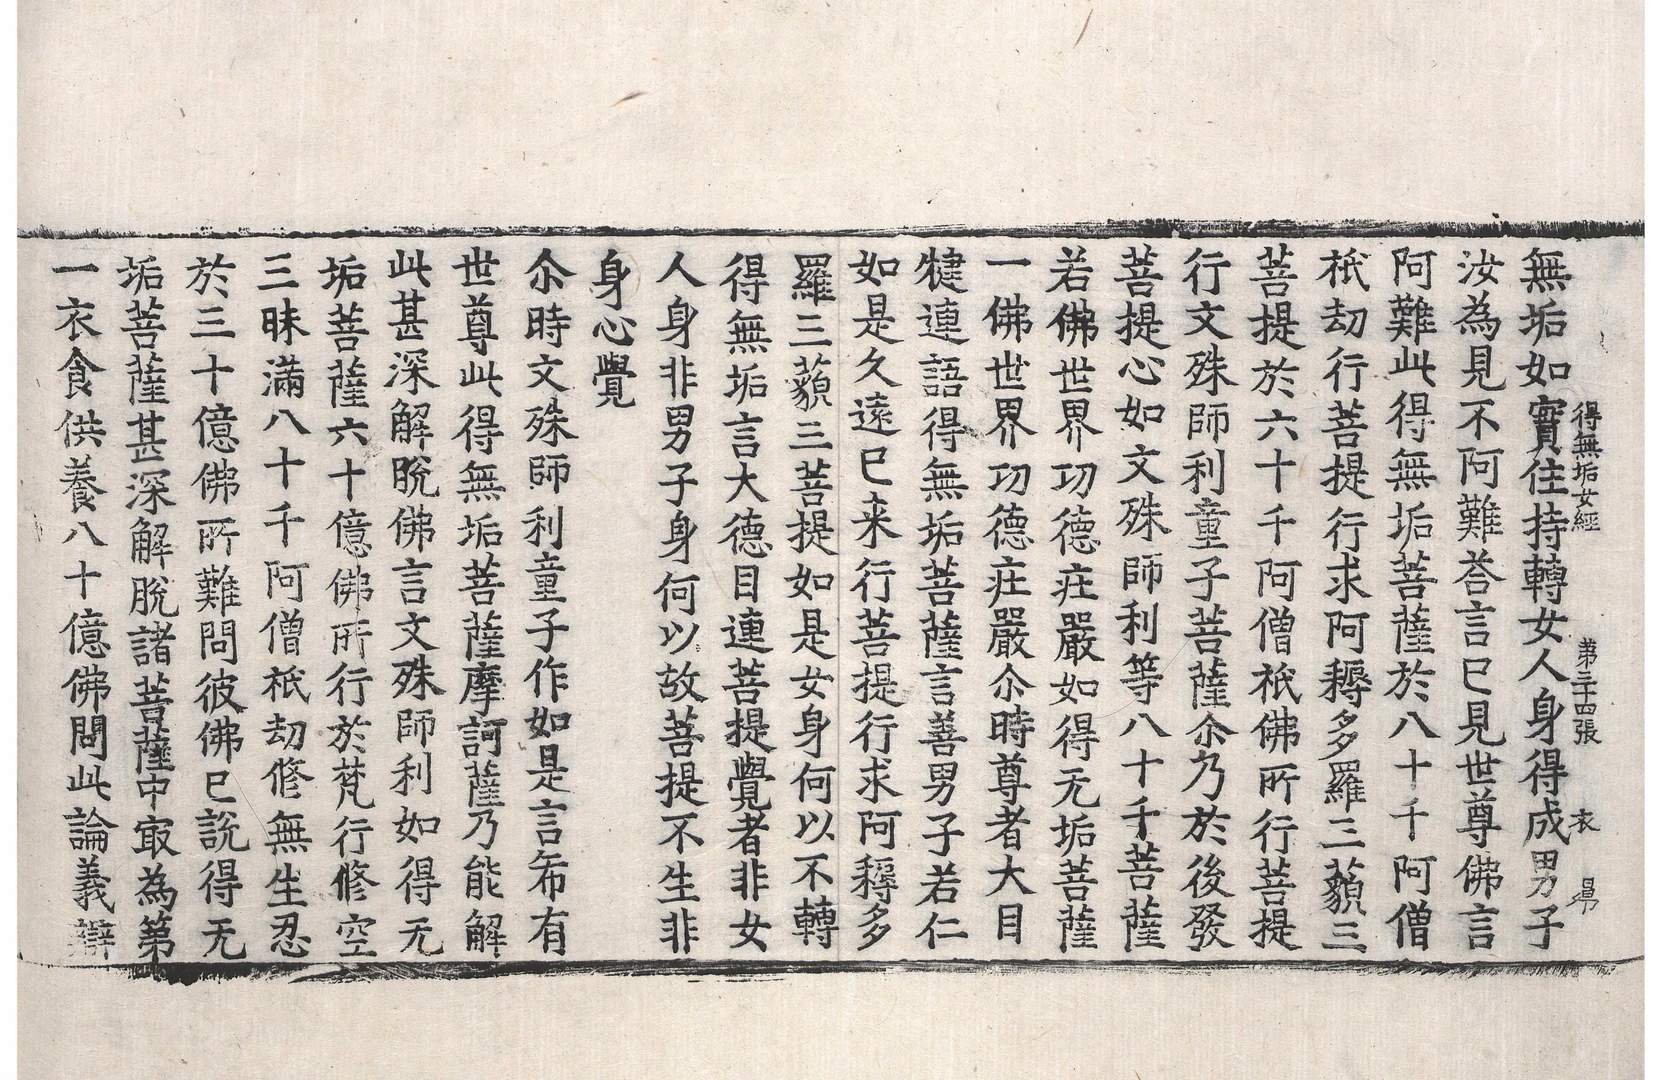 得無垢女經　第三十四張　衣
無垢如實住持轉女人身得成男子
汝為見不阿難荅言已見世尊佛言
阿難此得無垢菩薩於八十千阿僧
祇劫行菩提行求阿耨多羅三藐三
菩提於六十千阿僧祇佛所行菩提
行文殊師利童子菩薩尒乃於後發
菩提心如文殊師利等八十千菩薩
若佛世界功德庄嚴如得无垢菩薩
一佛世界功德庄嚴尒時尊者大目
犍連語得無垢菩薩言善男子若仁
如是久遠已来行菩提行求阿耨多
羅三藐三菩提如是女身何以不轉
得無垢言大德目連菩提覺者非女
人身非男子身何以故菩提不生非
身心覺
尒時文殊師利童子作如是言希有
世尊此得無垢菩薩摩訶薩乃能解
此甚深解脫佛言文殊師利如得无
垢菩薩六十億佛所行於梵行修空
三昧滿八十千阿僧祇劫修無生忍
於三十億佛所難問彼佛已說得无
垢菩薩甚深解脫諸菩薩中㝡為第
一衣食供養八十億佛問此論義辯